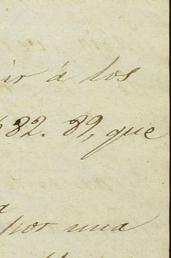 ir á los
82. 89, que
por una